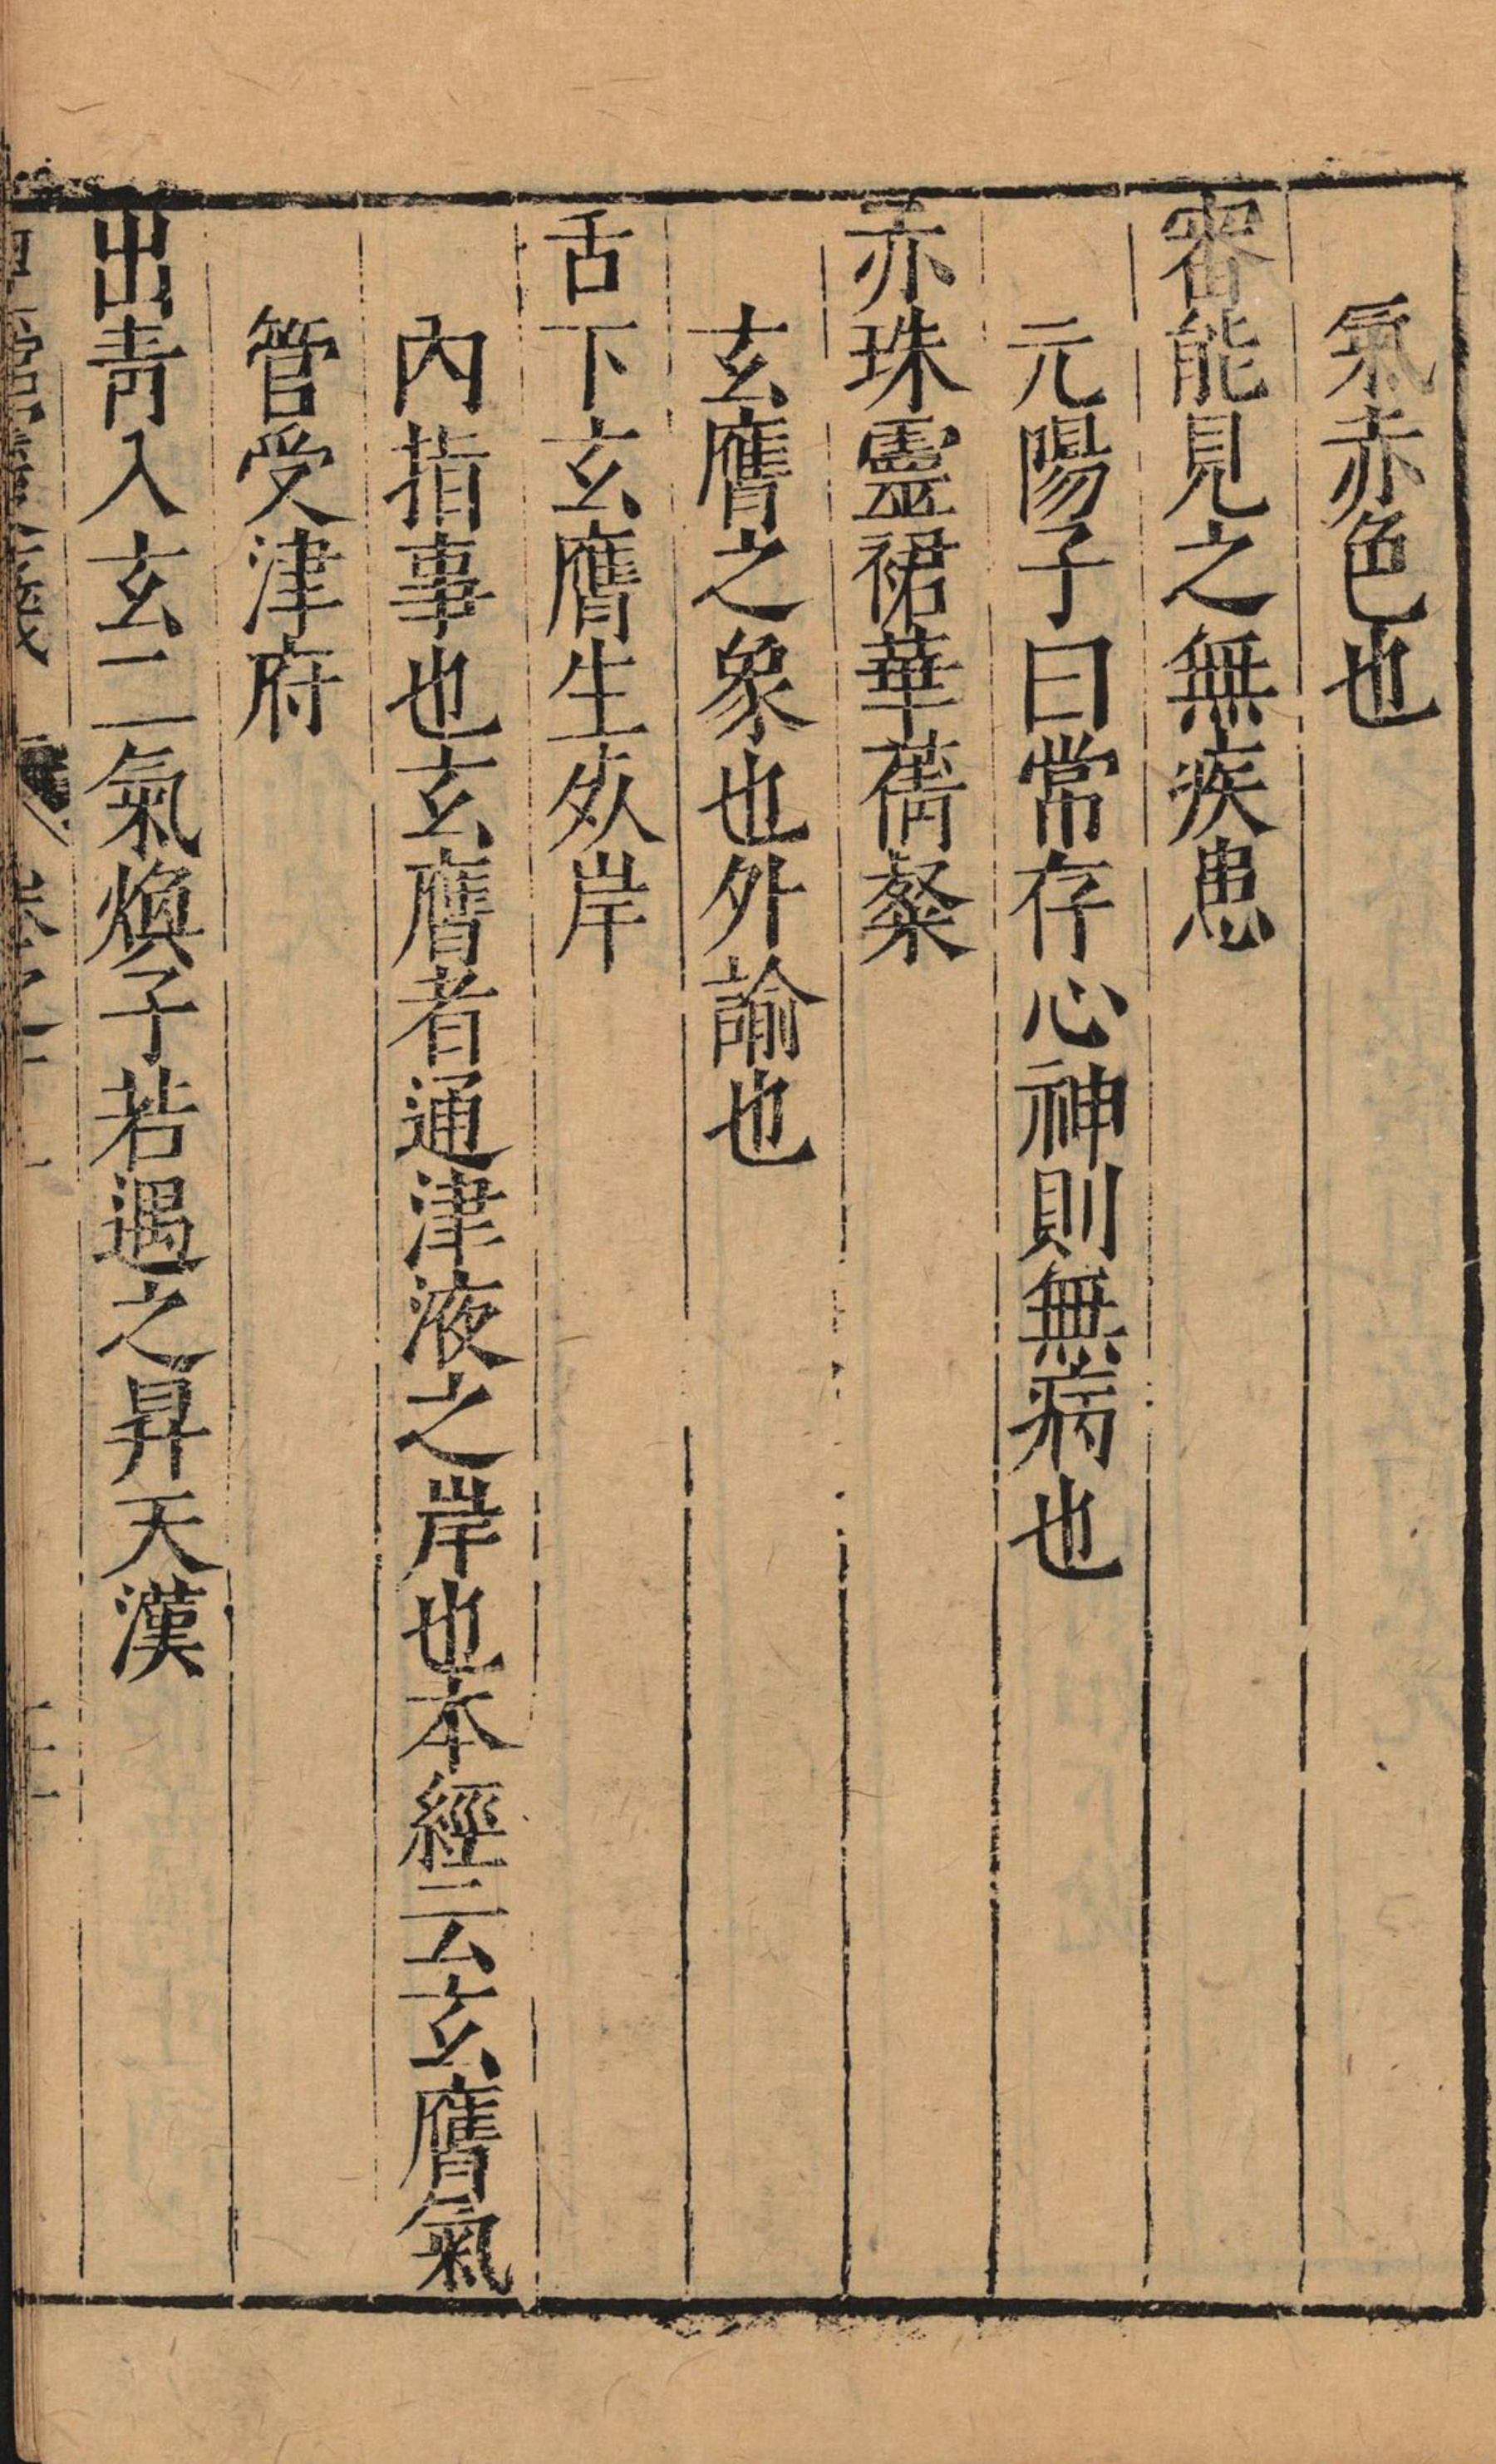 氣赤色也
審能見之無疾患
元陽子曰常存心神則無病也
赤珠靈裙華蒨粲
玄膺之象也外諭也
舌下玄膺生死岸
內指事也玄膺者通津液之岸也本經云玄膺氣
管受津府
出青入玄二氣煥子若遇之昇天漢